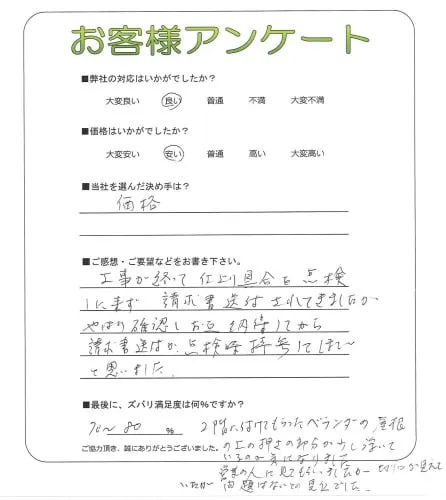 お客様アンケート
■弊社の対応はいかがでしたか?
大変良い 良い 普通 不満 大変不満
■価格はいかがでしたか?
大変安い 安い 普通 高い 大変高い
■当社を選んだ決め手は?
価格
■ご感想・ご要望などをお書き下さい。
工事が終って 仕上り具合を点検
に来ず 請求書送付されてきましたが
やはり確認しお互納得してから
請求書送付か、点検時持参してほしい
と思いました。
■最後に、ズバリ満足度は何%ですか?
70〜80 % 2階に付けてもらったベランダーの屋根
ご協力頂き、誠にありがとうございました。 の上の押さの部分が少し浮いて
いるのが気になりました
営業の人に見てもらいましたが
問題はないとの見立でした。